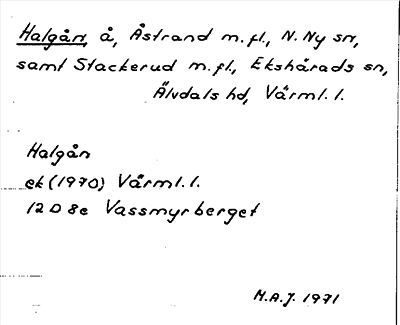 Halgån, å, Åstrand m.fl., N. Ny sn,
samt Stackerud m.fl., Ekshärads sn,
Älvdals hd, Värml. l.
Halgån
ek (1970) Värml. l.
12 D 8e Vassmyrberget
M.A.J. 1971